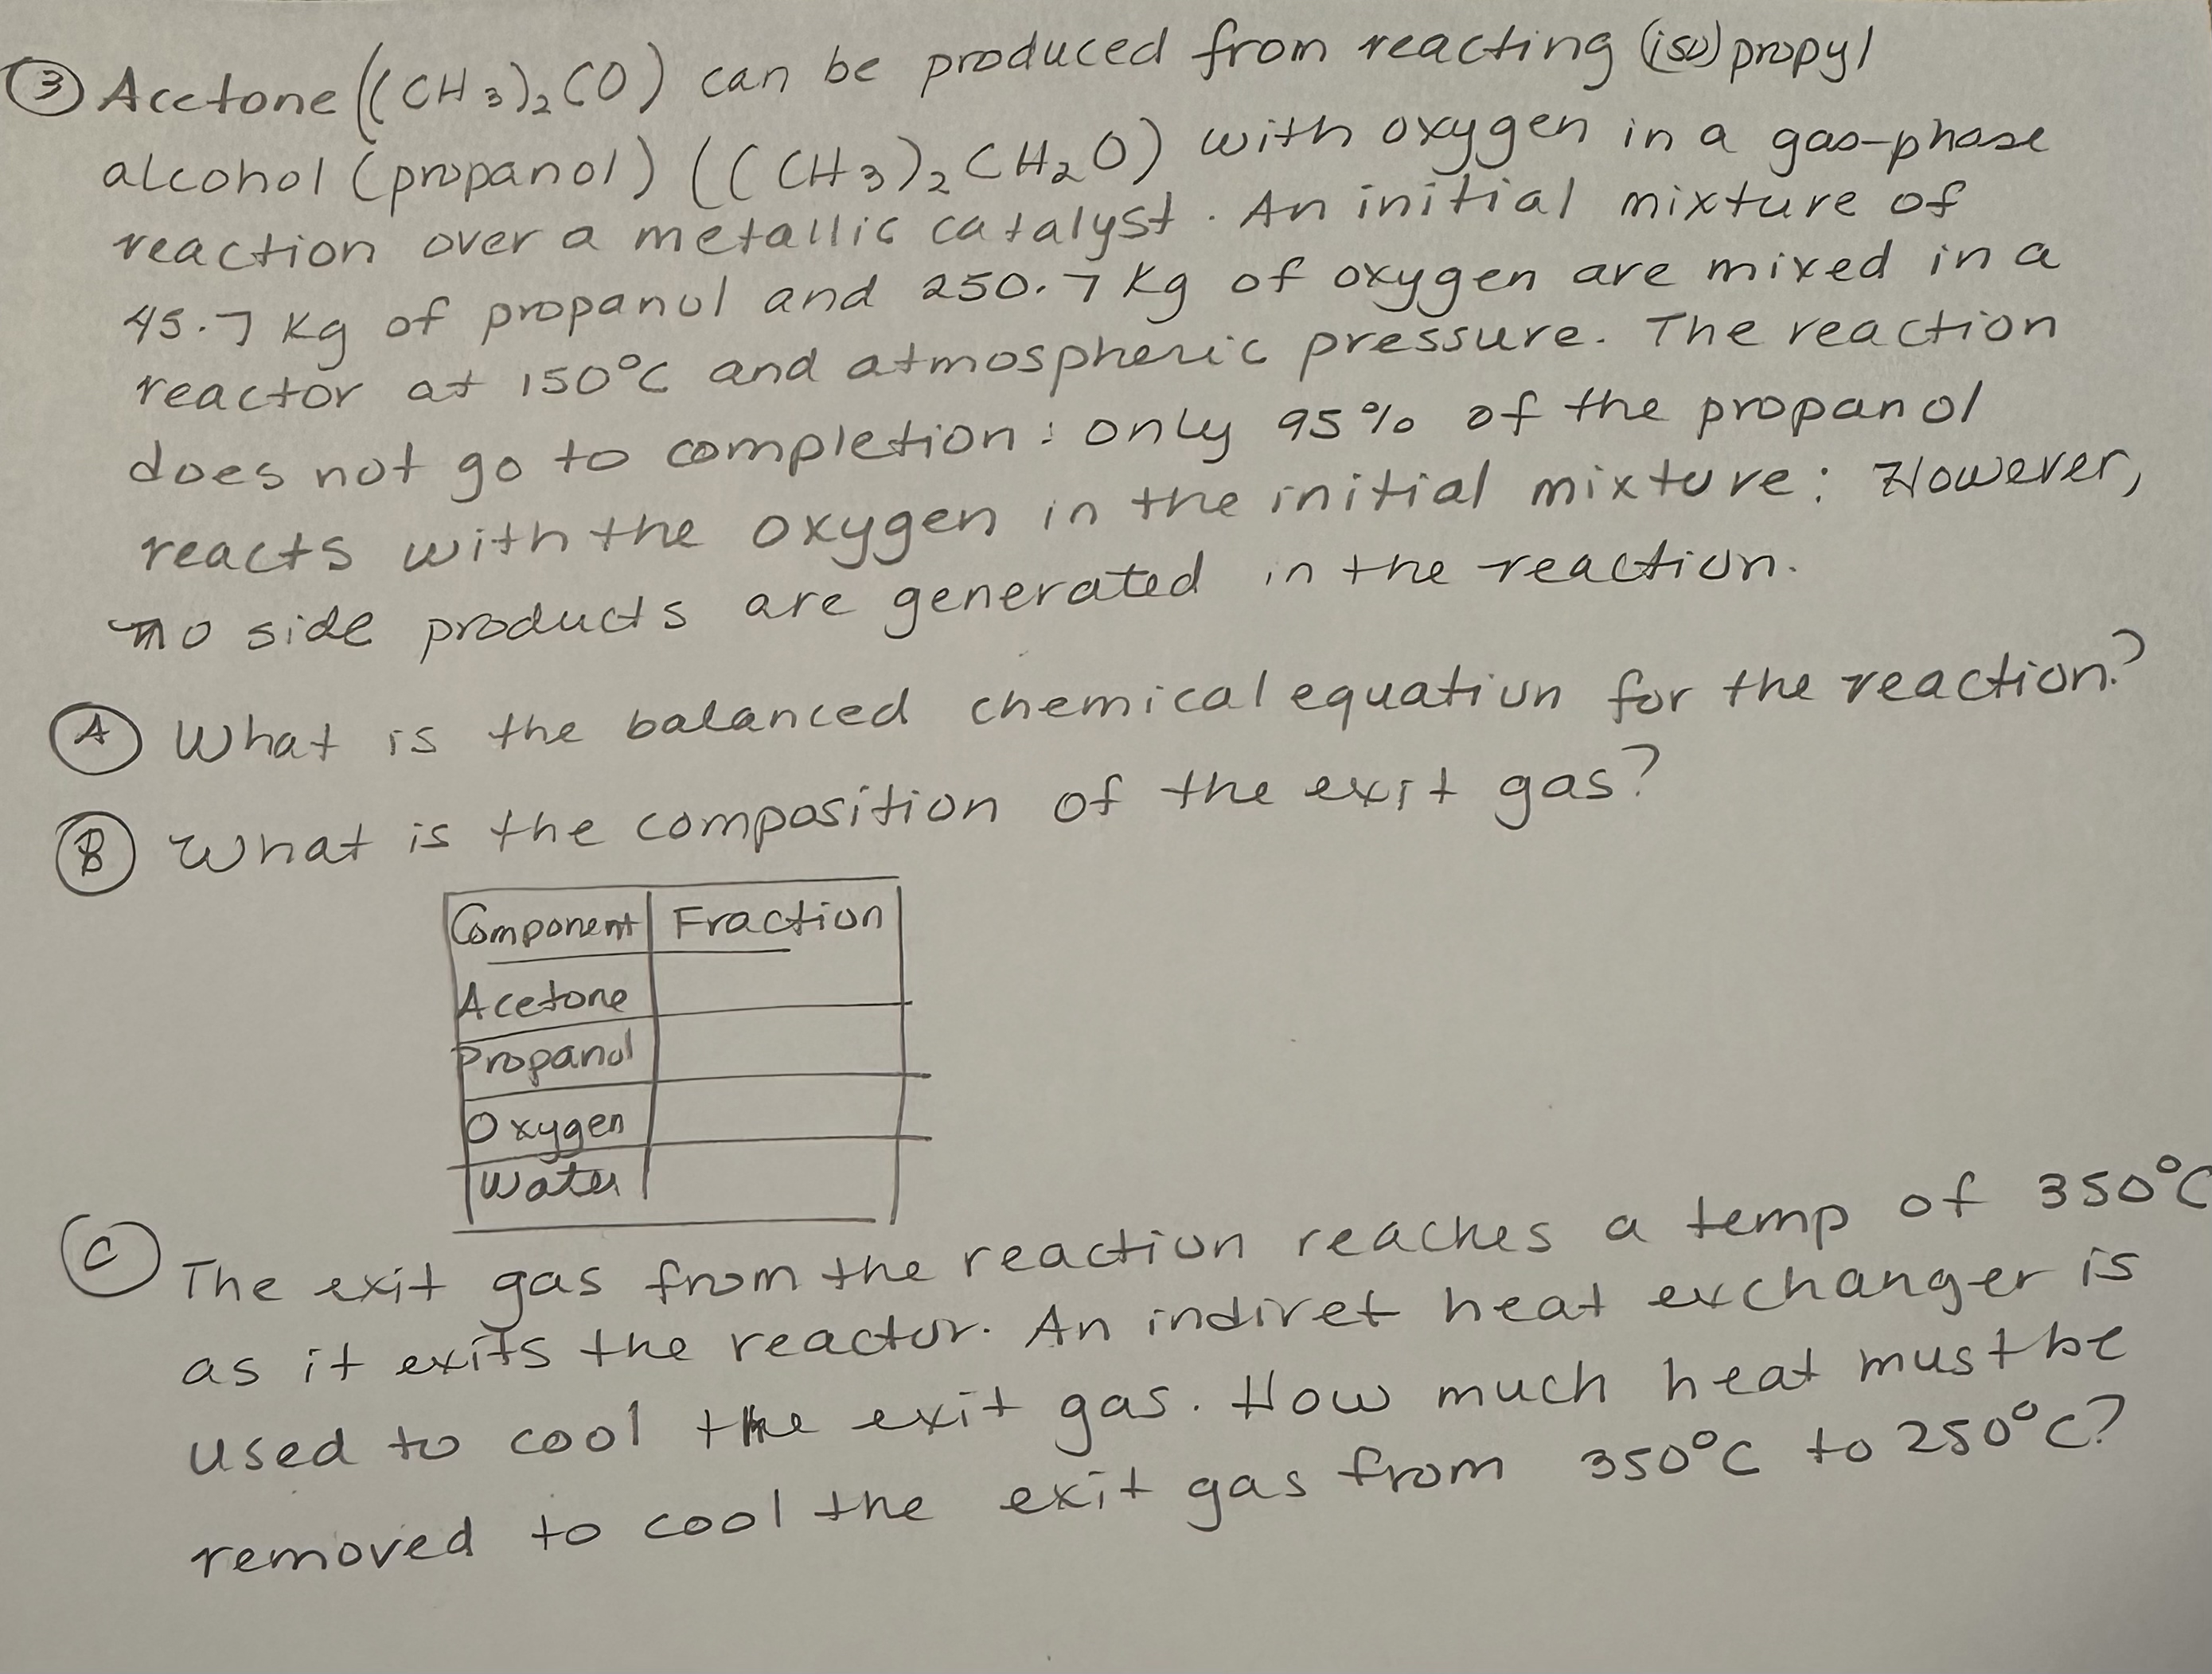 ③ Acetone ((CH₃)₂CO) can be produced from reacting (iso)propyl
alcohol (propanol) ((CH₃)₂CH₂O) with oxygen in a gas-phase
reaction over a metallic catalyst. An initial mixture of
45.7 kg of propanol and 250.7 kg of oxygen are mixed in a
reactor at 150°C and atmospheric pressure. The reaction
does not go to completion: only 95% of the propanol
reacts with the oxygen in the initial mixture; However,
no side products are generated in the reaction.
Ⓐ What is the balanced chemical equation for the reaction?
Ⓑ What is the composition of the exit gas?
Component Fraction
Acetone
Propanol
Oxygen
Water
Ⓒ The exit gas from the reaction reaches a temp of 350°C
as it exits the reactor. An indiret heat exchanger is
used to cool the exit gas. How much heat must be
removed to cool the exit gas from 350°C to 250°C?